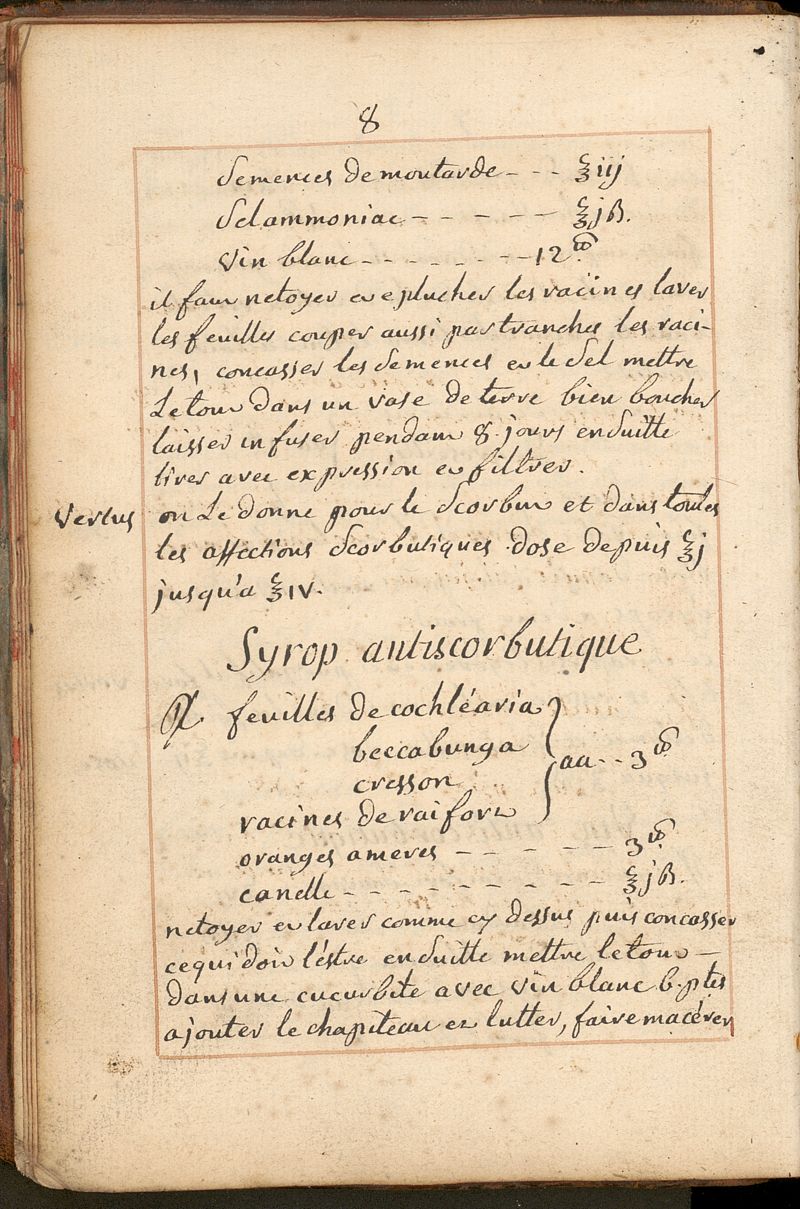 8
Semences de moutarde - - - ℥iij
Sel ammoniac - - - - - ℥jß.
Vin blanc - - - - - - - - 12 ℔.
il faut netoyer et eplucher les racines laver
les feuilles couper aussi par tranches les raci-
nes, concasser les Semences et le Sel mettre
Le tout dans un vase de terre bien boucher
laisser infuser pendant 8 jours ensuitte
tirer avec expression et filtrer.
Vertus on Le donne pour le Scorbut et dans toutes
les affections Scorbutiques. dose depuis ℥j
jusqu'a ℥iv.
Syrop antiscorbutique
♃. feuilles de cochléaria
beccabunga
cresson
racines de raifort
aa - - 3 ℔
oranges ameres - - - - - 3 ℔.
canelle - - - - - - - - ℥jß.
netoyer et laver comme cy dessus puis concasser
ce qui doit l'éstre ensuitte mettre le tout —
dans une cucurbite avec vin blanc 6. ptes
ajouter le chapiteau et lutter, faire macérer